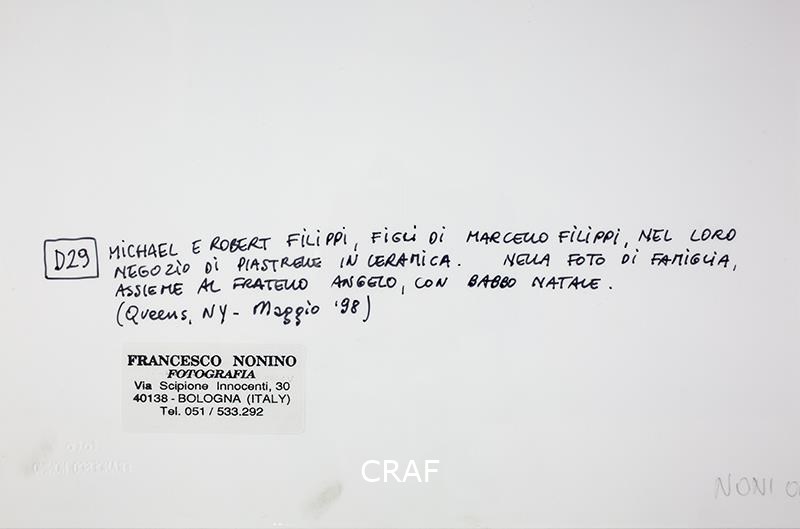 D29
MICHAEL E ROBERT FILIPPI, FIGLI DI MARCELLO FILIPPI, NEL LORO
NEGOZIO DI PIASTRELLE IN CERAMICA. NELLA FOTO DI FAMIGLIA,
ASSIEME AL FRATELLO ANGELO, CON BABBO NATALE.
(Queens, NY - Maggio '98)
FRANCESCO NONINO
FOTOGRAFIA
Via Scipione Innocenti, 30
40138 - BOLOGNA (ITALY)
Tel. 051 / 533.292
CRAF